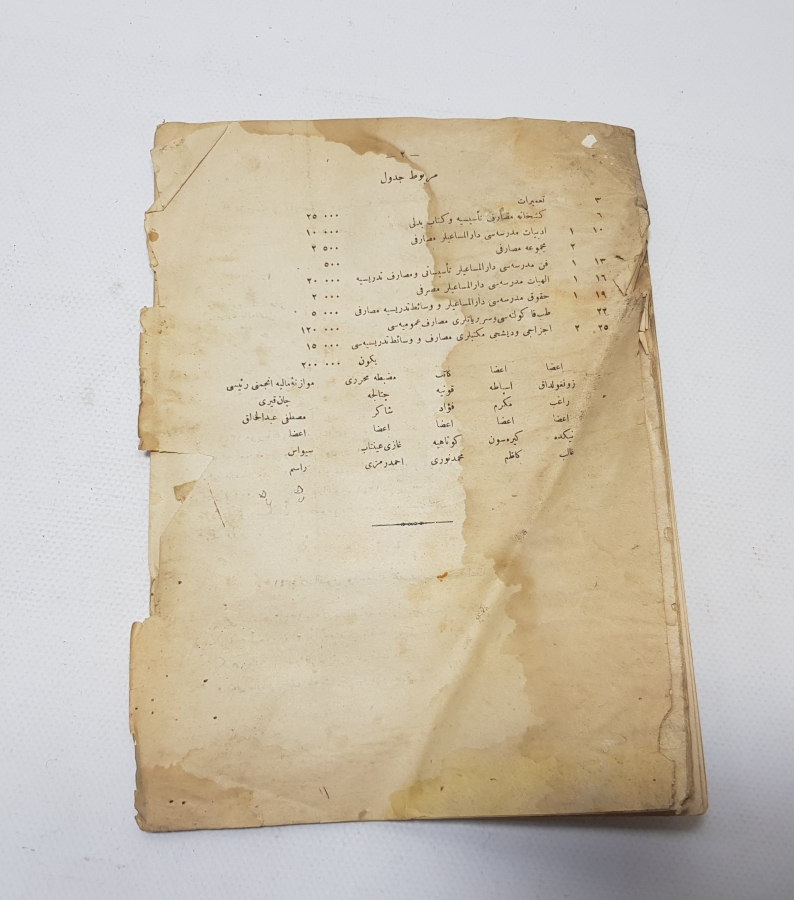 — ٢ —
مربوط جدول
٣ تعميرات ٢٥ ٠٠٠
٦ كتبخانه مصارف تأسيسيه و كتاب بدلى ١٠ ٠٠٠
١٠ ١ ادبيات مدرسه‌سى دارالمساعيلر مصارفى ٣ ٥٠٠
٢ مجموعه مصارفى ٥٠٠
١٣ ١ فن مدرسه‌سى دارالمساعيلر تأسيساتى ومصارف تدريسيه ٢٠ ٠٠٠
١٦ ١ الهيات مدرسه‌سى دارالمساعيلر مصرفى ٢ ٠٠٠
١٩ ١ حقوق مدرسه‌سى دارالمساعيلر و وسائط تدريسيه مصارفى ٥ ٠٠٠
٢٢ طب فاكولته‌سى وسريرياتلرى مصارف عموميه‌سى ١٢٠ ٠٠٠
٢٥ ٢ اجزاجى وديشجى مكتبلرى مصارف و وسائط تدريسيه‌سى ١٥ ٠٠٠
يكون ٢٠٠ ٠٠٠
اعضا اعضا كاتب مضبطه محررى موازنهٔ ماليه انجمنى رئيسى
زونغولداق اسپاطه قونيه چتالجه
راغب مكرم فؤاد شاكر مصطفى عبدالخالق
اعضا اعضا اعضا اعضا اعضا
نيكده كيره‌سون كوتاهيه غازى عينتاب سيواس
غالب كاظم محمدنورى احمدرمزى راسم